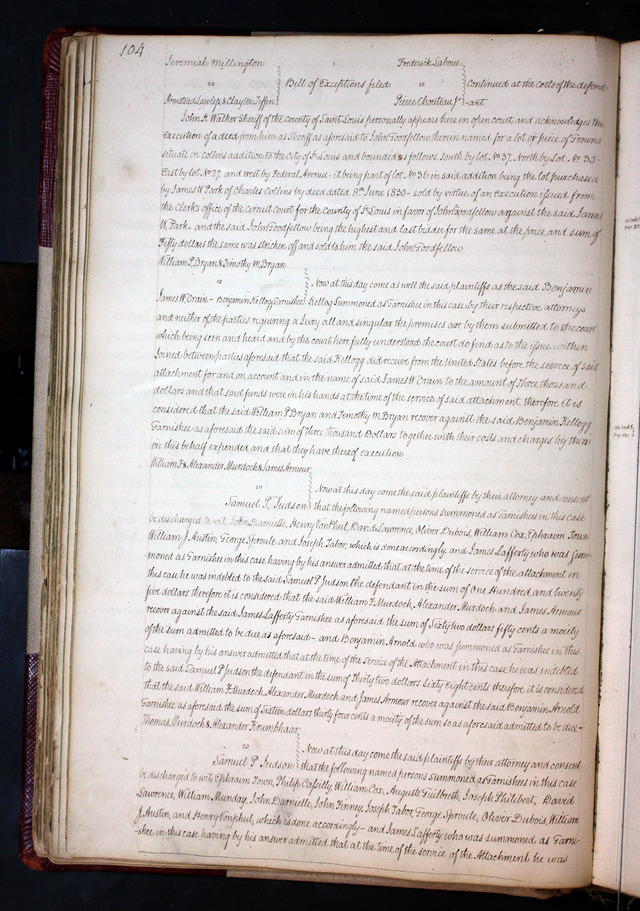 104
Jeremiah Millington Frederick Laboue
vs Bill of Exceptions filed vs Continued at the costs of the defend-
Armstead Lawless & Clayton Tiffin Pierre Chouteau Jr -ant
John K. Walker Sheriff of the county of Saint Louis personally appears here in open court and acknowledges the
execution of a deed from him as Sheriff as aforesaid to John Goodfellow therein named for a lot or piece of Ground
situate in collins addition to the city of St Louis and bounded as follows south by lot No 37. North by Lot No 35
East by lot No 27. and west by Federal Avenue - it being part of lot No 36 in said addition being the lot purchased
by James W. Park of Charles Collins by deed dated 8th June 1830 - sold by virtue of an execution issued from
the Clerk's office of the circuit court for the County of St Louis in favor of John Goodfellow against the said James
W. Park - and the said John Goodfellow being the highest and last bidder for the same at the price and sum of
Fifty dollars the same was stricken off and sold to him the said John Goodfellow
William P. Bryan & Timothy M. Bryan
vs Now at this day come as well the said plaintiffs as the said Benjamin
James W. Drain - Benjamin Kellogg Garnishee Kellogg Summoned as Garnishee in this case by their respective attorneys
and neither of the parties requiring a Jury all and singular the premises are by them submitted to the court
which being seen and heard and by the court here fully understood the court do find as to the issue within
Joined between parties aforesaid that the said Kellogg did receive from the United States before the service of said
attachment for and on account and in the name of said James W. Drain to the amount of three thousand
dollars and that said funds were in his hands at the time of the service of said attachment, therefore it is
considered that the said William P. Bryan and Timothy M. Bryan recover against the said Benjamin Kellogg
Garnishee as aforesaid the said sum of three thousand Dollars together with their costs and charges by them
on this behalf expended and that they have thereof execution
William F. & Alexander Murdoch & James Armour
vs Now at this day come the said plaintiffs by their attorney and consent
Samuel P. Judson that the following named persons summoned as Garnishees in this case
be discharged to wit John Darnielle, Henry Von Phul, David Lawrence, Oliver Dubois, William Cox, Ephraim Town
William J. Austin, George Sproule and Joseph Tabor, which is done accordingly, and James Lafferty who was sum-
moned as Garnishee in this case having by his answer admitted that at the time of the service of the attachment in
this case he was indebted to the said Samuel P. Judson the defendant in the sum of One Hundred and twenty
five dollars therefore it is considered that the said William F. Murdoch, Alexander Murdoch and James Armour
recover against the said James Lafferty Garnishee as aforesaid the sum of Sixty two dollars fifty cents a moiety
of the sum admitted to be due as aforesaid - and Benjamin Arnold who was summoned as Garnishee in this
case having by his answer admitted that at the time of the service of the Attachment in this case he was indebted
to the said Samuel P. Judson the defendant in the sum of Thirty two dollars Sixty Eight cents therefore it is considered
that the said William F. Murdoch Alexander Murdoch and James Armour recover against the said Benjamin Arnold
Garnishee as aforesaid the sum of Sixteen dollars thirty four cents a moiety of the sum so as aforesaid admitted to be due -
Thomas Murdoch & Alexander Krumbhaar
vs Now at this day come the said plaintiffs by their attorney and consent
Samuel P. Judson that the following named persons summoned as Garnishees in this case
be discharged to wit, Ephraim Town, Philip Cafsilly, William Cox, Auguste Guilbreth, Joseph Philibert, David
Lawrence, William Munday, John Darnielle, John Finney, Joseph Tabor, George Sproule, Oliver Dubois, William
J. Austin, and Henry Vonphul, which is done accordingly - and James Lafferty who was summoned as Garni-
-shee in this case having by his answer admitted that at the time of the service of the Attachment he was